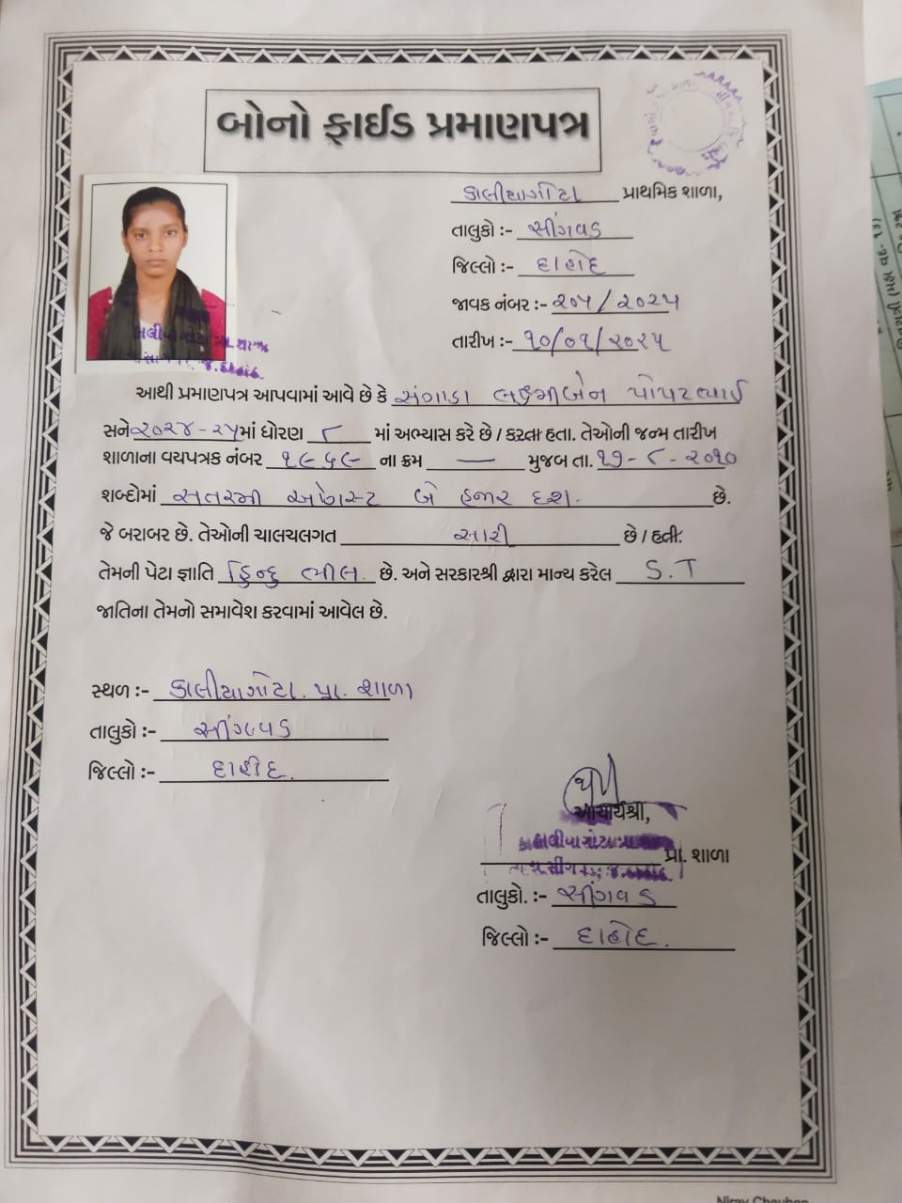 બોનો ફાઈડ પ્રમાણપત્ર
કાલીયાગોટા પ્રાથમિક શાળા,
તાલુકો :- સીંગવડ
જિલ્લો :- દાહોદ
જાવક નંબર :- ૨૦૫/૨૦૨૫
તારીખ :- ૧૦/૦૧/૨૦૨૫
આથી પ્રમાણપત્ર આપવામાં આવે છે કે સંગાડા લક્ષ્મીબેન પોપટભાઈ
સને ૨૦૨૪-૨૫માં ધોરણ ૮ માં અભ્યાસ કરે છે / કરતા હતા. તેઓની જન્મ તારીખ
શાળાના વયપત્રક નંબર ૧૯૫૯ ના ક્રમ — મુજબ તા. ૧૭-૮-૨૦૧૦
શબ્દોમાં સતરમી ઓગેસ્ટ બે હજાર દશ. છે.
જે બરાબર છે. તેઓની ચાલચલગત સારી છે / હતી.
તેમની પેટા જ્ઞાતિ હિન્દુ ભીલ. છે. અને સરકારશ્રી દ્વારા માન્ય કરેલ S.T
જાતિના તેમનો સમાવેશ કરવામાં આવેલ છે.
સ્થળ :- કાલીયાગોટા. પ્રા. શાળા
તાલુકો :- સીંગવડ
જિલ્લો :- દાહોદ.
આચાર્યશ્રી,
પ્રા. શાળા
તાલુકો. :- સીંગવડ
જિલ્લો :- દાહોદ.